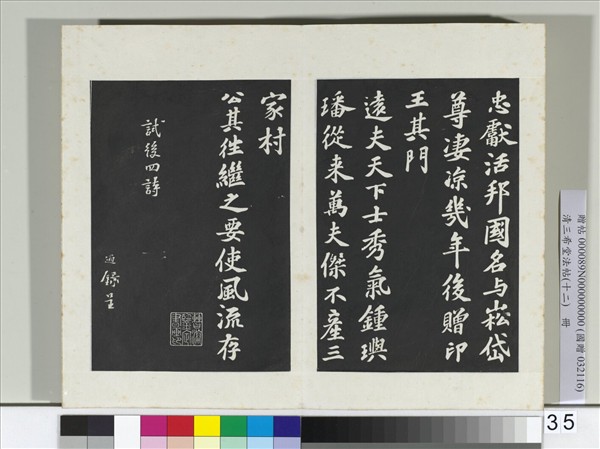 忠獻活邦國名与崧岱
尊凄涼幾年後贈印
王其門
遠夫天下士秀氣鍾璵
璠從来萬夫傑不産三
家村
公其往繼之要使風流存
試後四詩
錄呈
贈帖 000089N000000000 (國贈 032116)
清三希堂法帖(十二) 冊
35